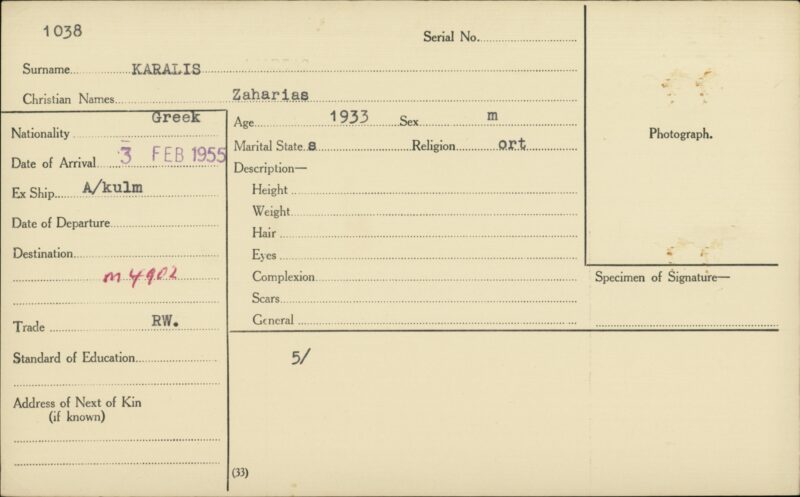 1038
Serial No.
Surname KARALIS
Christian Names Zaharias
Nationality Greek
Date of Arrival 3 FEB 1955
Ex Ship A/kulm
Date of Departure
Destination
m 4902
Trade RW.
Standard of Education
Address of Next of Kin
(if known)
Age 1933 Sex m
Marital State s Religion ort
Description—
Height
Weight
Hair
Eyes
Complexion
Scars
General
5/
(33)
Photograph.
Specimen of Signature—